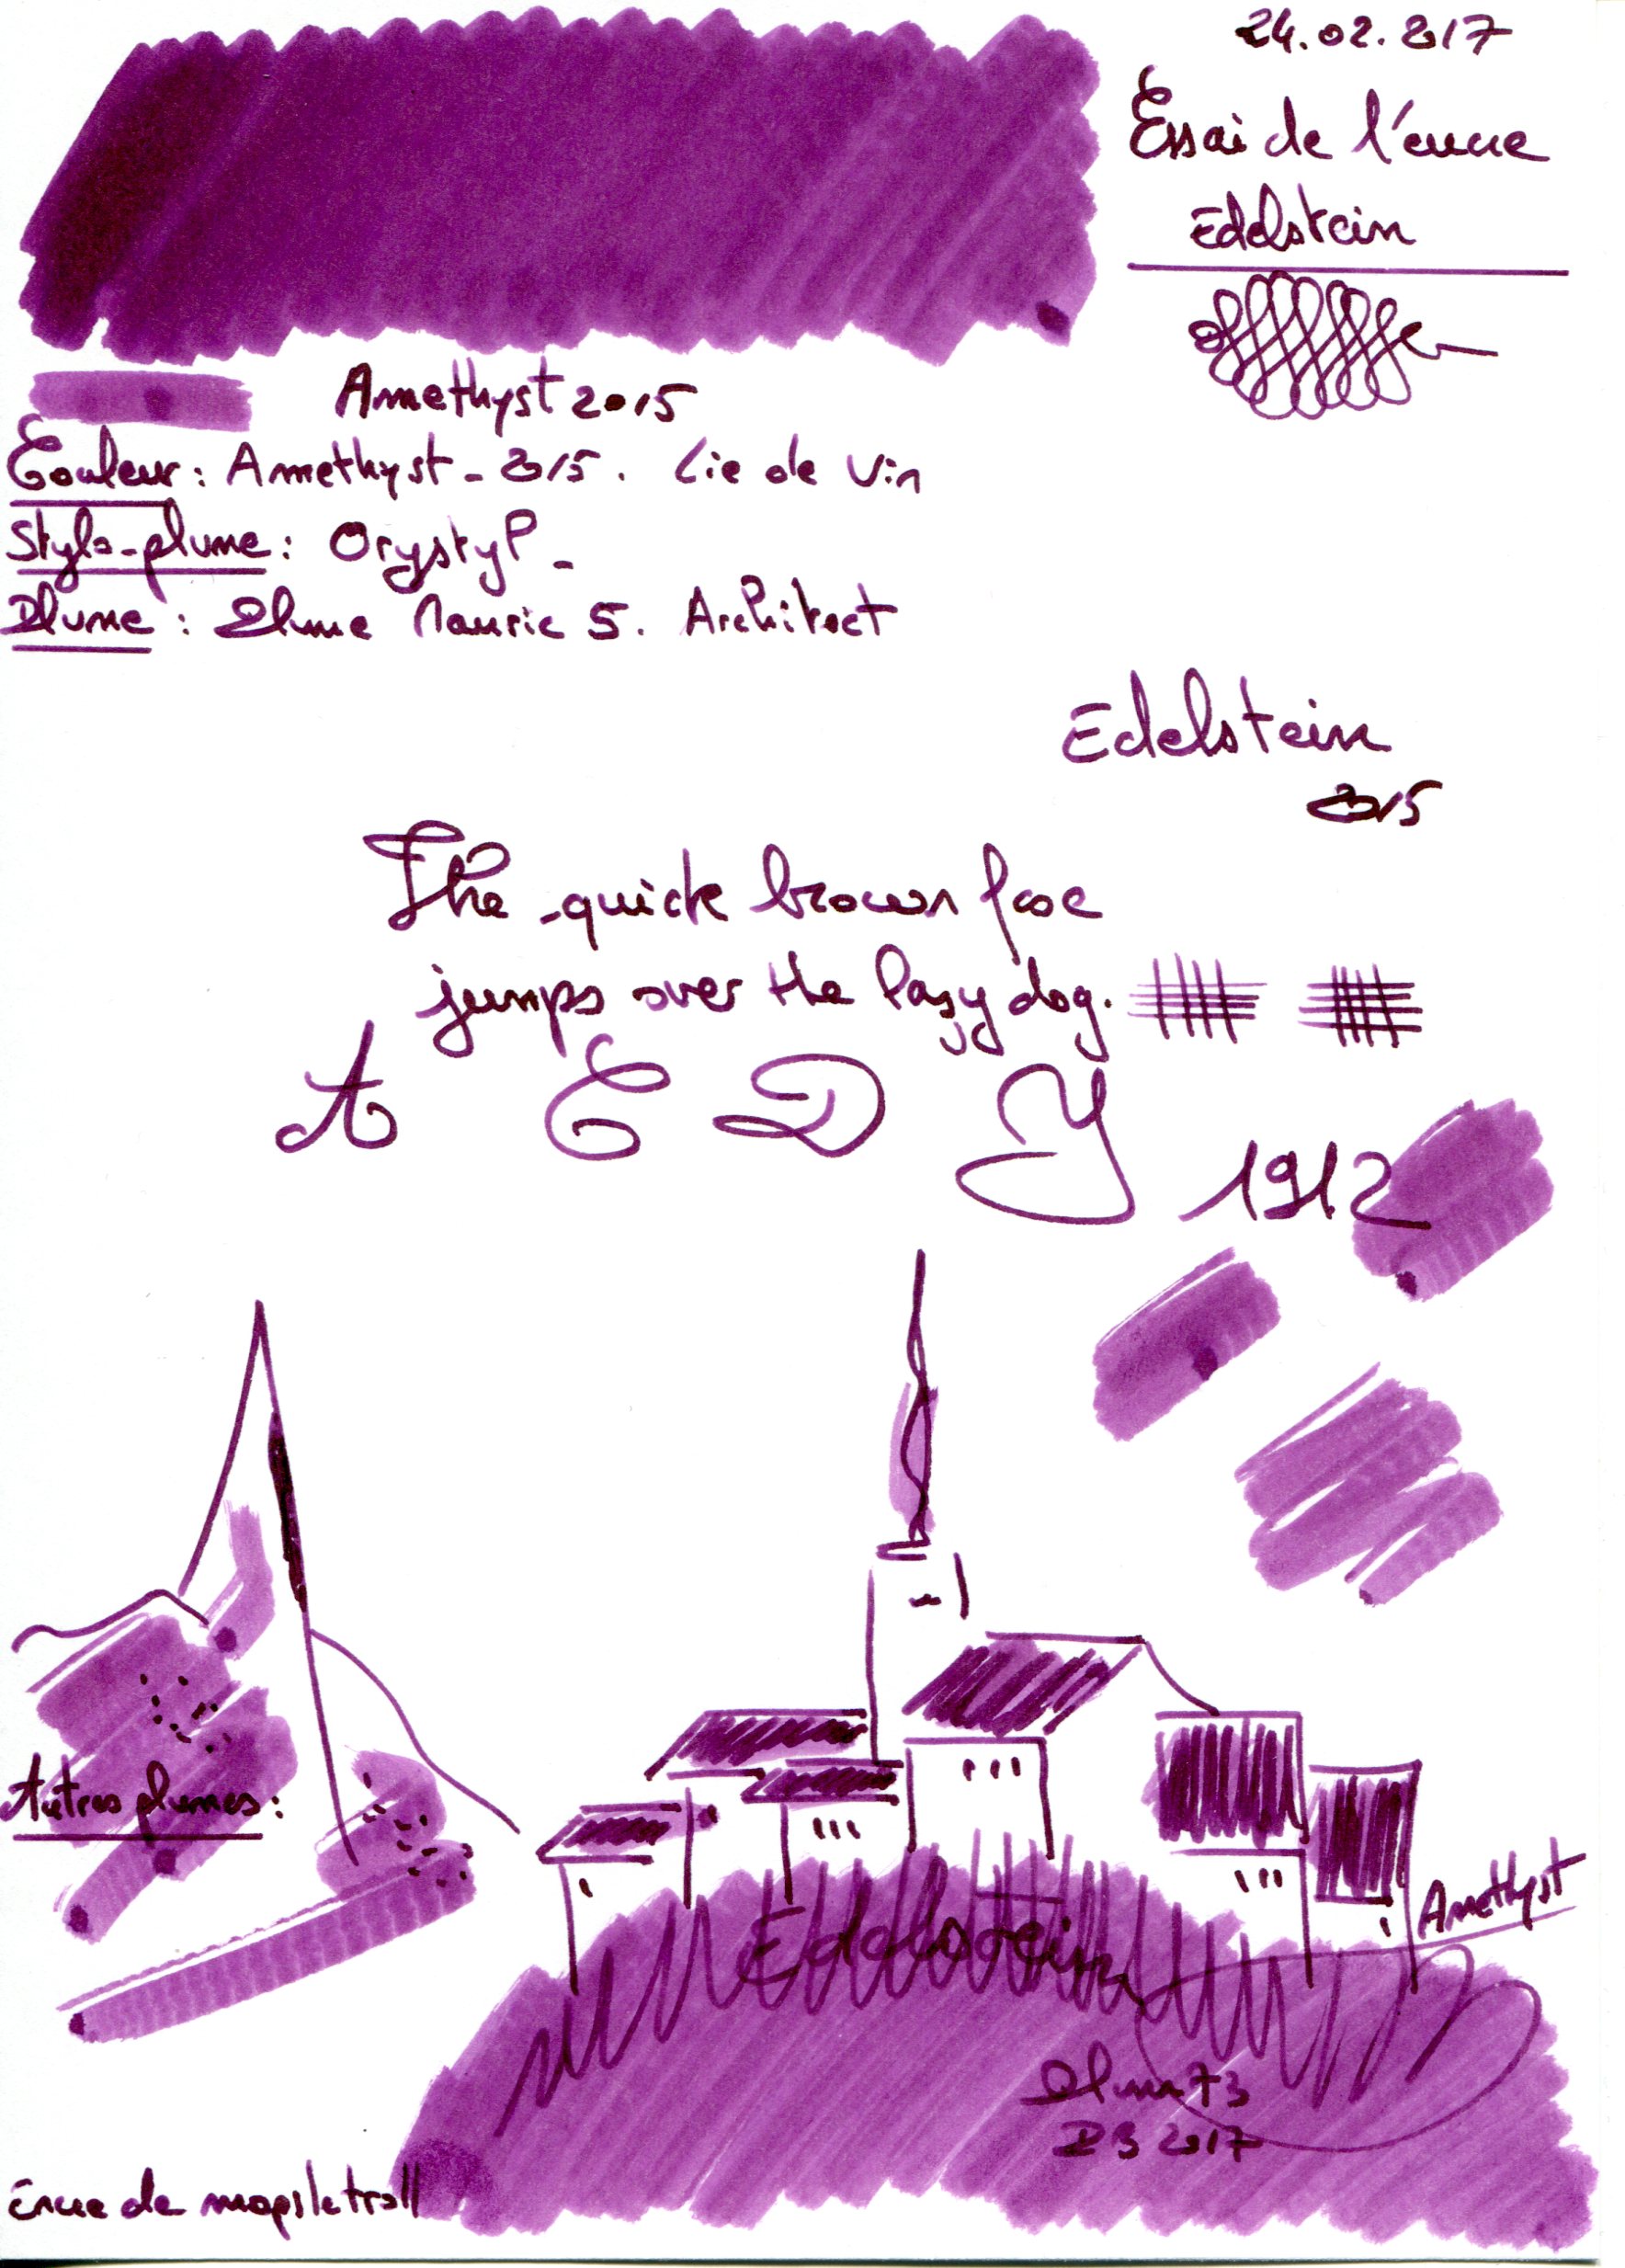 24.02.2017
Essai de l'encre
Edelstein
Amethyst 2015
Couleur : Amethyst - 2015. Lie de vin
Stylo-plume : Orystyl -
Plume : Plume Mauric 5. Architect
Edelstein
2015
The quick brown fox
jumps over the lazy dog.
A E D Y
1912
Autres plumes :
Amethyst
Edelstein
Plum73
2017
Encre de mapsletroll